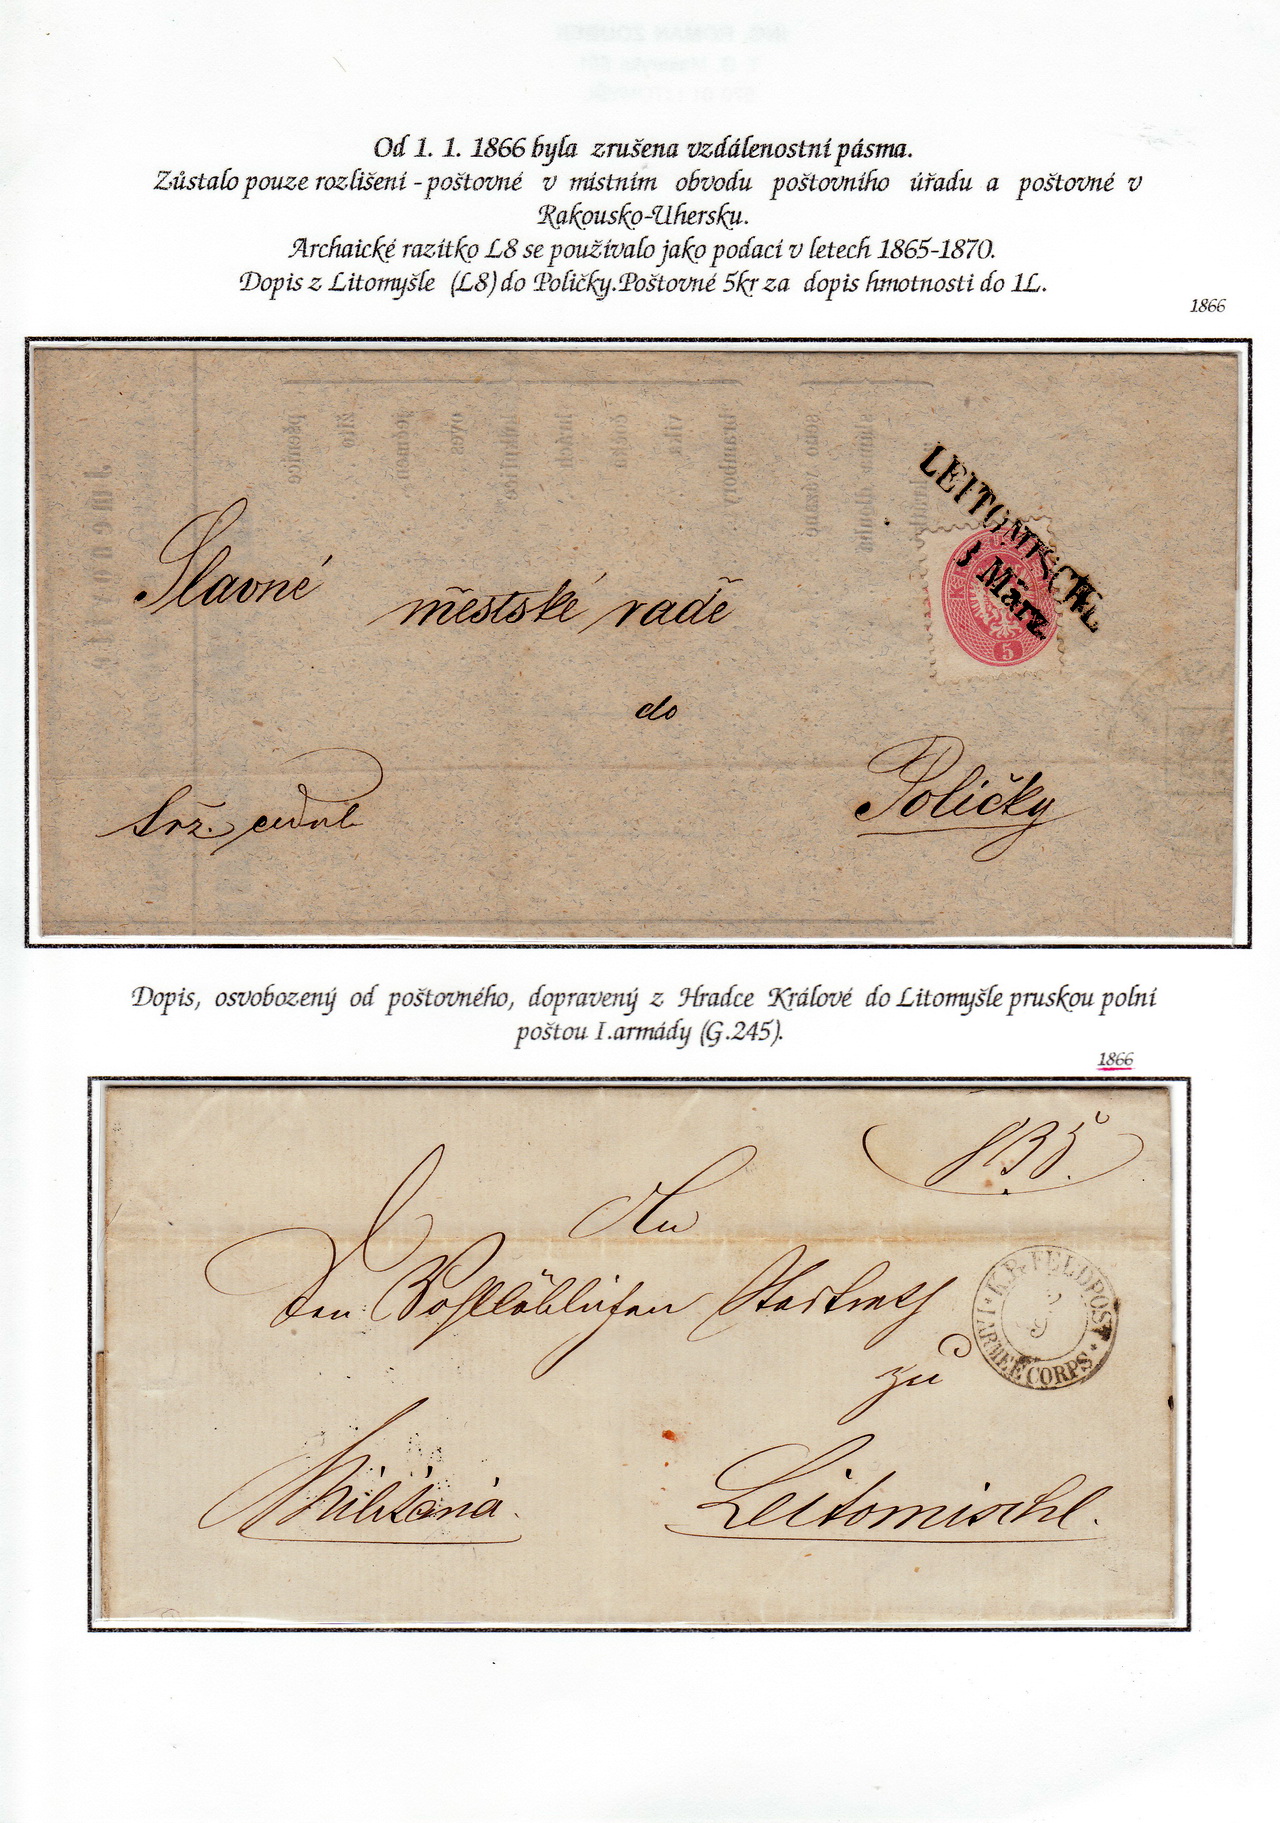 Od 1. 1. 1866 byla zrušena vzdálenostní pásma.
Zůstalo pouze rozlišení - poštovné v místním obvodu poštovního úřadu a poštovné v
Rakousko-Uhersku.
Archaické razítko L8 se používalo jako podací v letech 1865-1870.
Dopis z Litomyšle (L8) do Poličky. Poštovné 5kr za dopis hmotnosti do 1L.
1866
LEITOMISCHL
3 März
5
Slavné městské radě
do
Poličky
Dopis, osvobozený od poštovného, dopravený z Hradce Králové do Litomyšle pruskou polní
poštou I.armády (G.245).
1866
835.
An
den Wohllöblichen Stadtrath
zu
K.PR.FELDPOST
I. ARMEE CORPS
Leitomischl.